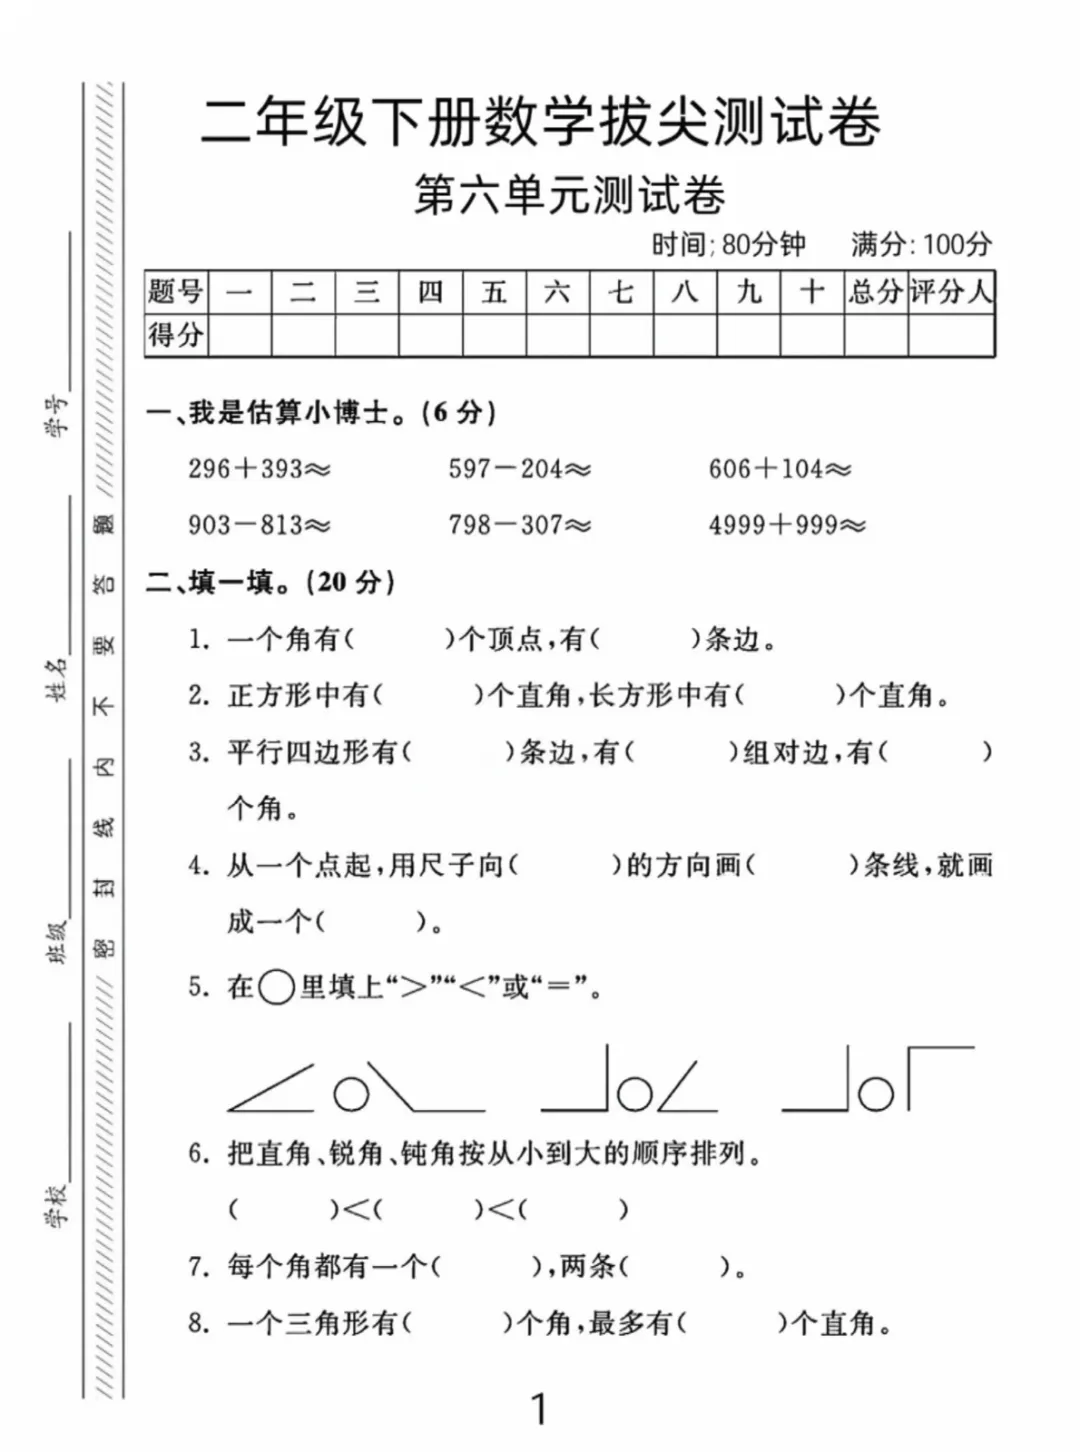 二年级下册数学拔尖测试卷
第六单元测试卷
时间;80分钟 满分:100分
题号 一 二 三 四 五 六 七 八 九 十 总分 评分人
得分
一、我是估算小博士。(6 分)
296+393≈ 597-204≈ 606+104≈
903-813≈ 798-307≈ 4999+999≈
二、填一填。(20 分)
1. 一个角有( )个顶点,有( )条边。
2. 正方形中有( )个直角,长方形中有( )个直角。
3. 平行四边形有( )条边,有( )组对边,有( )
个角。
4. 从一个点起,用尺子向( )的方向画( )条线,就画
成一个( )。
5. 在○里填上“>”“<”或“=”。
6. 把直角、锐角、钝角按从小到大的顺序排列。
( )<( )<( )
7. 每个角都有一个( ),两条( )。
8. 一个三角形有( )个角,最多有( )个直角。
1
学校 班级 姓名 学号
密 封 线 内 不 要 答 题